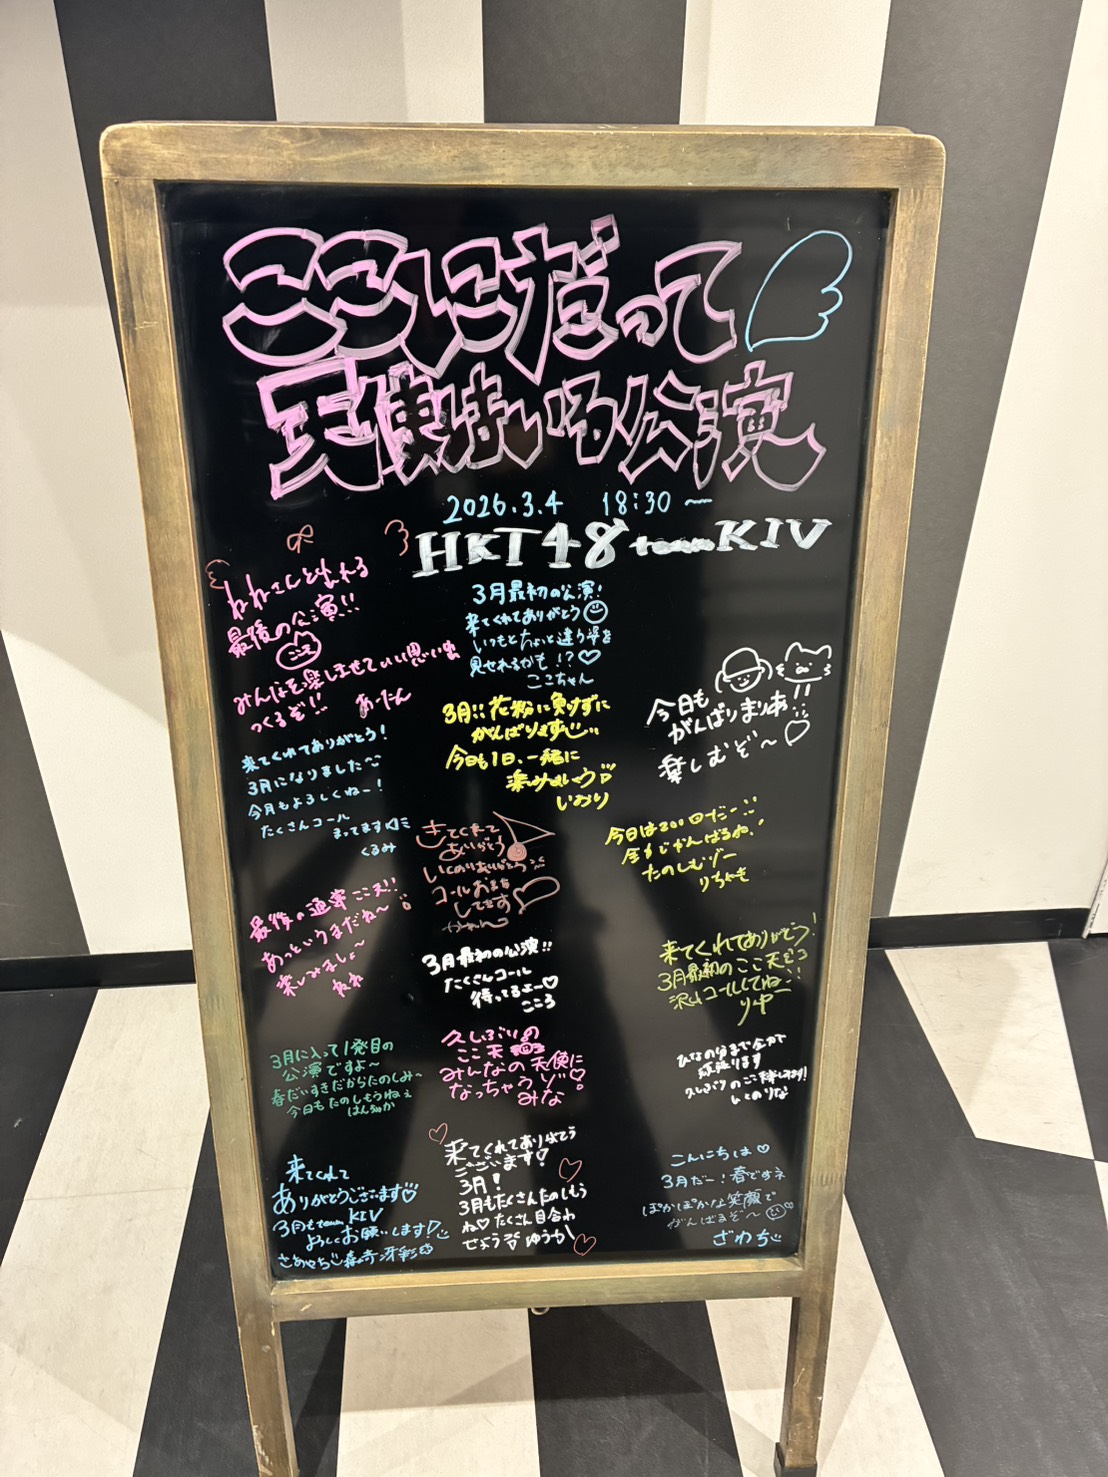 ここにだって
天使はいる公演
2026.3.4 18:30〜
HKT48 team KIV
ねねさんと出れる
最後の公演!!
ここ天
みんなを楽しませていい思い出
つくるぞ!!
あーたん
3月最初の公演!
来てくれてありがとう
いつもとちょっと違う姿を
見せれるかも!?♡
ここちゃん
来てくれてありがとう!
3月になりました〜
今月もよろしくねー!
たくさんコール
まってます
くるみ
3月!!花粉に負けずに
がんばります
今日も1日、一緒に
楽しみましょう
いおり
今日も
がんばりまりあ
楽しむぞ〜♡
きてくれて
ありがとう
いくのりありがとう
コールおまち
してます
今日は200回目だー!!
全力でがんばるね!
たのしむゾー
りちゃも
最後の通常ここ天!!
あっというまだね〜
楽しみましょ〜
ねね
3月最初の公演!!
たくさんコール
待ってるよー♡
こころ
来てくれてありがとう!
3月最初のここ天だろ
沢山コールしてね!!
3月に入って1発目の
公演ですよ〜
春だいすきだからたのしみ〜
今日もたのしもうねぇ
はんちゅか
久しぶりの
ここ天
みんなの天使に
なっちゃうゾ♡
みな
ひなの分まで全力で
頑張ります
久しぶりのここ天楽しみます!!
いとのりな
来てくれて
ありがとうございます♡
3月もteam KIV
よろしくお願いします!
さあやちゃん 森﨑冴彩
来てくれてありがとう
ございます!
3月!
3月もたくさんたのしもう
ね♡たくさん目合わ
せよう ゆうか
こんにちは♡
3月だー!春ですネ
ぽかぽかな笑顔で
がんばるぞ〜
ざわち